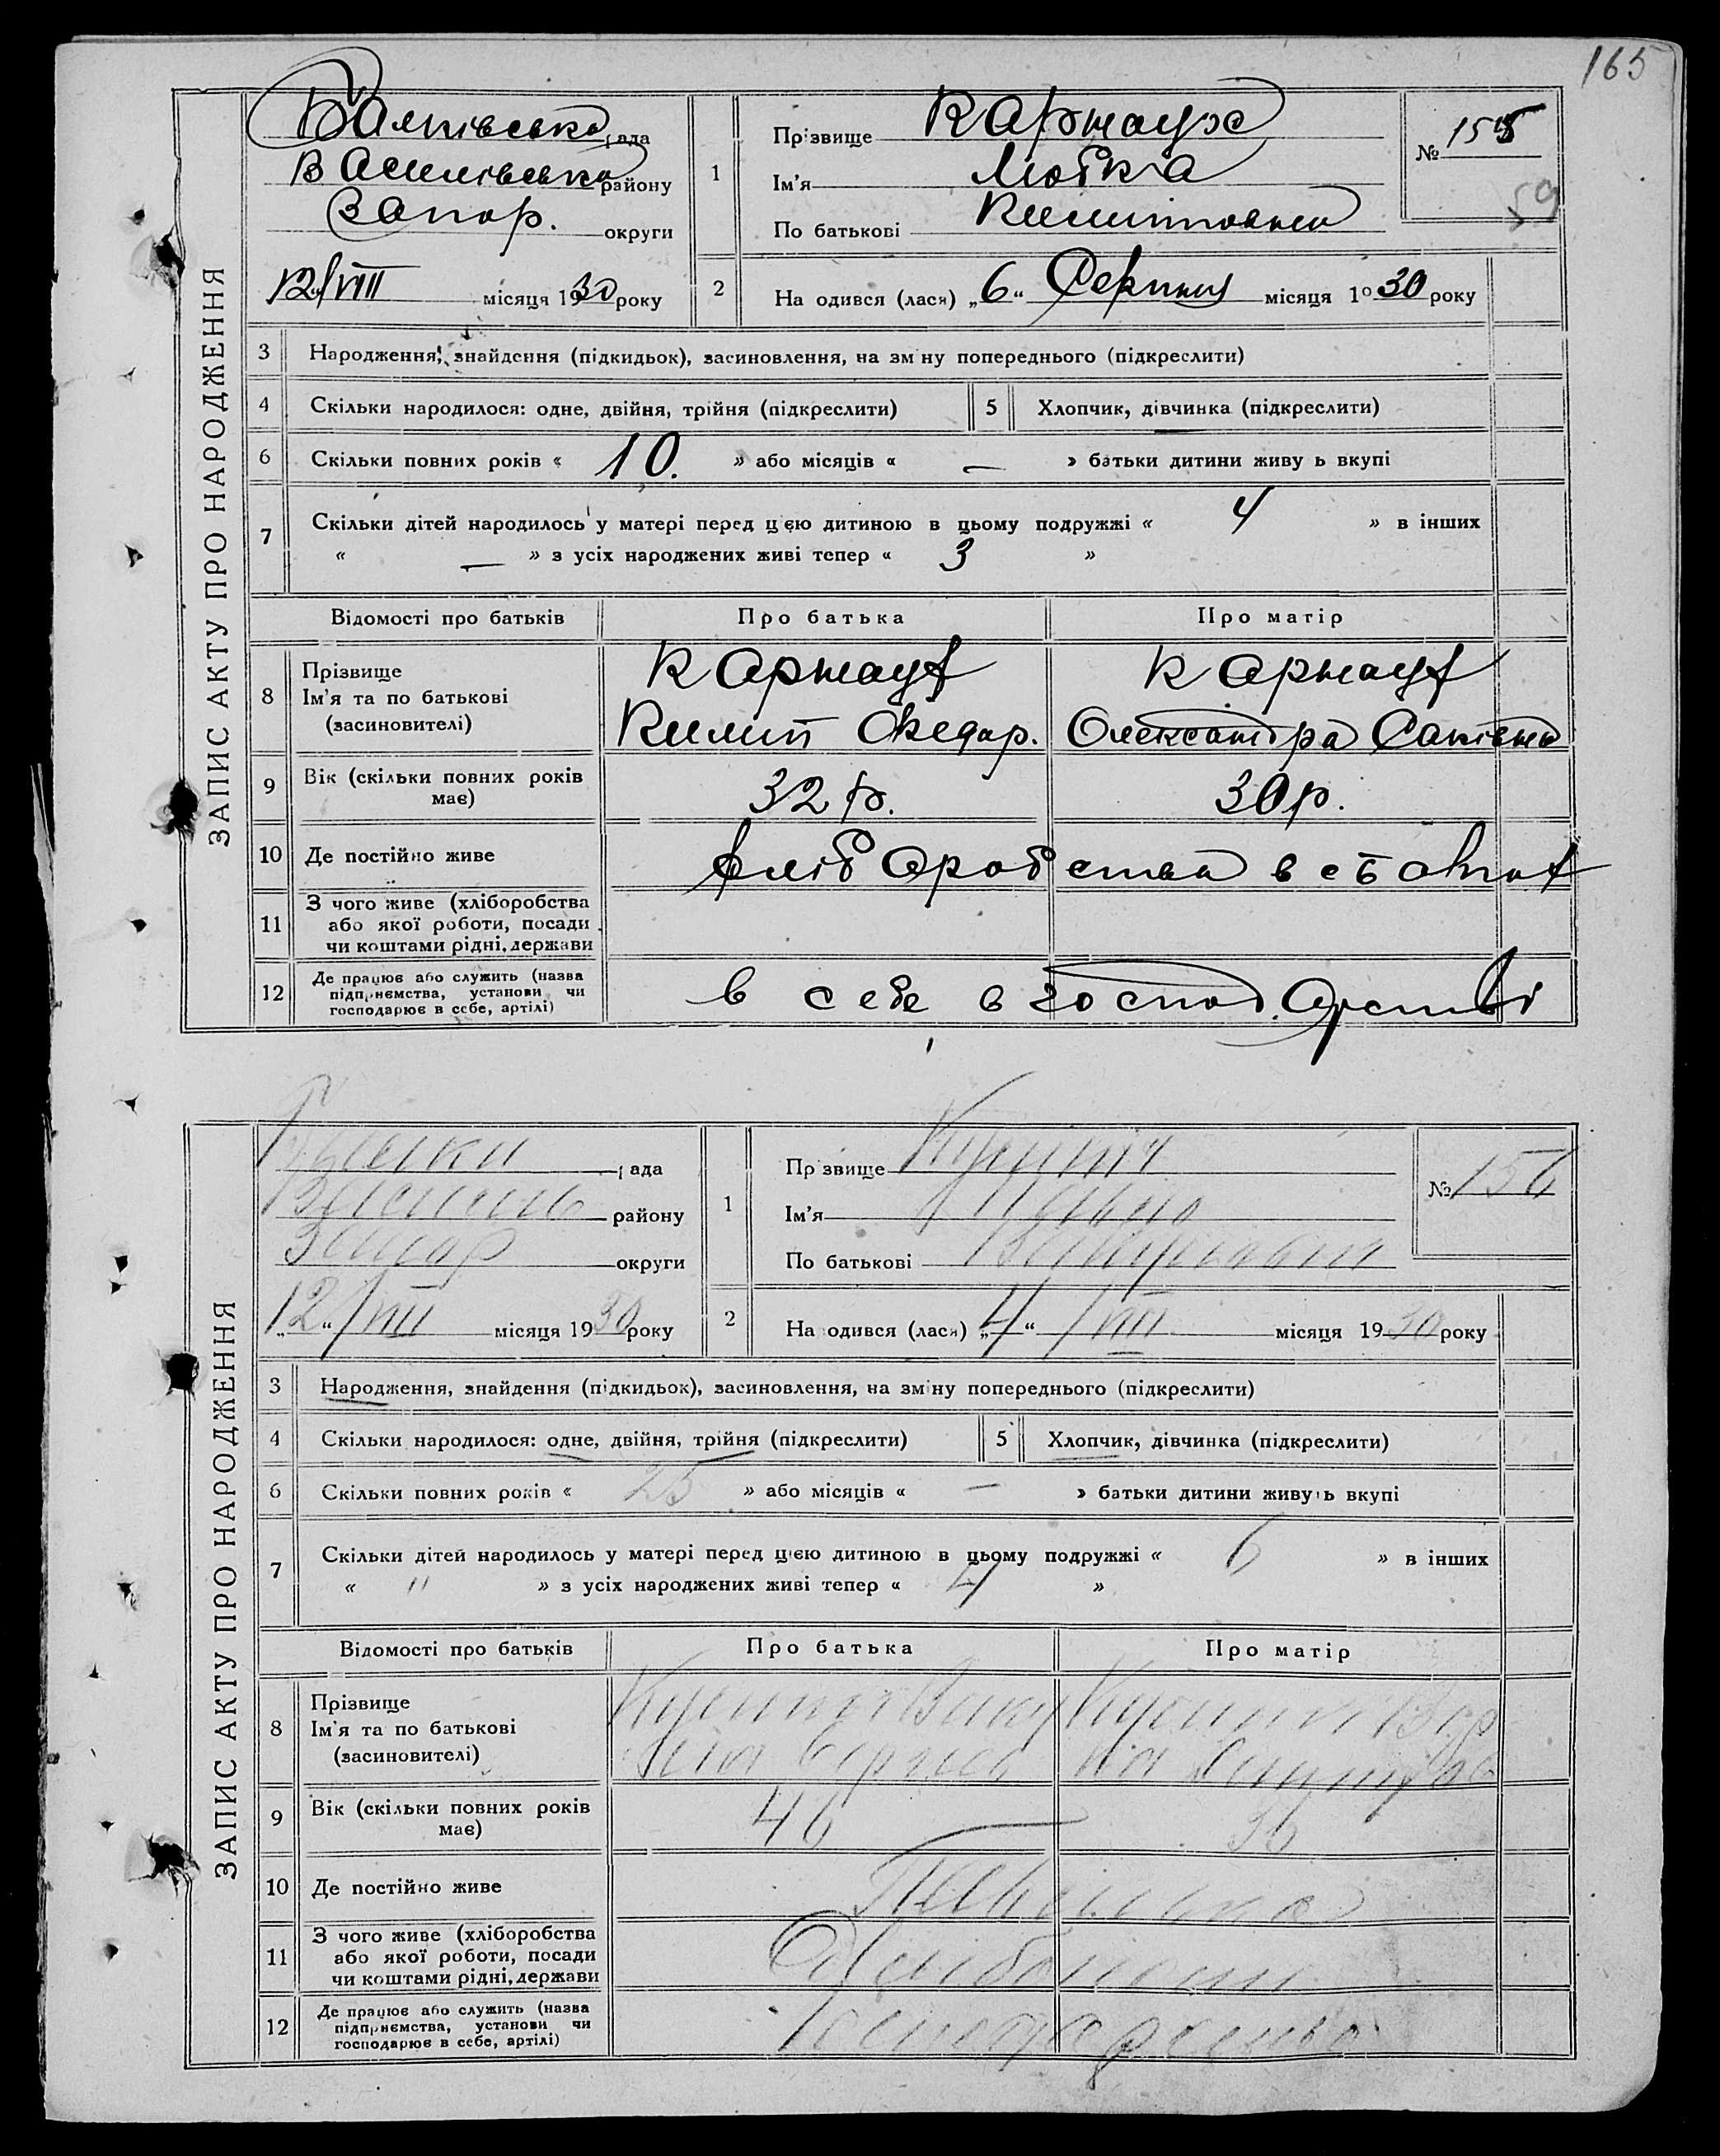 165
ЗАПИС АКТУ ПРО НАРОДЖЕННЯ
Балківська рада
Василівська району
Запор. округи
12/VIII місяця 1930 року
1
Прізвище Карнаух
Ім'я Любка
По батькові Килиповна
№ 155
59
2
На одився (лася) „6“ Серпня місяця 1930 року
3 Народження, знайдення (підкидьок), засиновлення, на зміну попереднього (підкреслити)
4 Скільки народилося: одне, двійня, трійня (підкреслити) 5 Хлопчик, дівчинка (підкреслити)
6 Скільки повних років « 10. » або місяців « — » батьки дитини живу ь вкупі
7 Скільки дітей народилось у матері перед цією дитиною в цьому подружжі « 4 » в інших
« — » з усіх народжених живі тепер « 3 »
Відомості про батьків Про батька Про матір
8 Прізвище
Ім'я та по батькові
(засиновителі)
Карнаух
Килип Федор.
Карнаух
Олександра Саківна
9 Вік (скільки повних років має) 32 р. 30 р.
10 Де постійно живе хліборобства в
11 З чого живе (хліборобства
або якої роботи, посади
чи коштами рідні, держави
12 Де працює або служить (назва
підприємства, установи чи
господарює в себе, артілі)
в себе в господарстві
ЗАПИС АКТУ ПРО НАРОДЖЕННЯ
Балки рада
Василів району
Запор округи
„12“/VIII місяця 1930 року
1
Пр звище
Ім'я Павло
По батькові
№ 156
2
На одився (лася) „4“ /VIII місяця 1930 року
3 Народження, знайдення (підкидьок), засиновлення, на зміну попереднього (підкреслити)
4 Скільки народилося: одне, двійня, трійня (підкреслити) 5 Хлопчик, дівчинка (підкреслити)
6 Скільки повних років « 25 » або місяців « — » батьки дитини живуть вкупі
7 Скільки дітей народилось у матері перед цією дитиною в цьому подружжі « 6 » в інших
« " » з усіх народжених живі тепер « 4 »
Відомості про батьків Про батька Про матір
8 Прізвище
Ім'я та по батькові
(засиновителі)
9 Вік (скільки повних років має) 46 36
10 Де постійно живе
11 З чого живе (хліборобства
або якої роботи, посади
чи коштами рідні, держави
12 Де працює або служить (назва
підприємства, установи чи
господарює в себе, артілі)